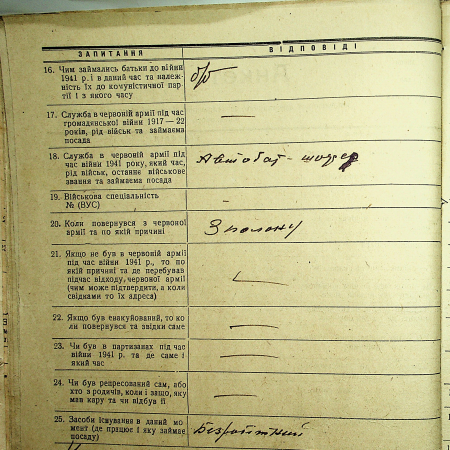 ЗАПИТАННЯ ВІДПОВІДІ
16. Чим займались батьки до війни
1941 р. і в даний час та належ-
ність їх до комуністичної пар
тії і з якого часу
б/п
17. Служба в червоній армії під час
громадянської війни 1917 — 22
років, рід військ та займаєма
посада
—
18. Служба в червоній армії під
час війни 1941 року, який час,
рід військ, останнє військове
звання та займаєма посада
Автобат - шофер
19. Військова спеціальність
№ (ВУС)
-
20. Коли повернувся з червоної
армії та по якій причині
З полону
21. Якщо не був в червоній армії
під час війни 1941 р., то по
якій причині та де перебував
підчас відходу, червоної армії
(чим може підтвердити, а коли
свідками то їх адреса)
—
22. Якщо був евакуйований, то ко
ли повернувся та звідки саме
—
23. Чи був в партизанах під час
війни 1941 р. та де саме і
який час
—
24. Чи був репресований сам, або
хто з родичів, коли і защо, яку
мав кару та чи відбув її
—
25. Засоби існування в даний мо
мент (де працює і яку займає
посаду)
Безробітний